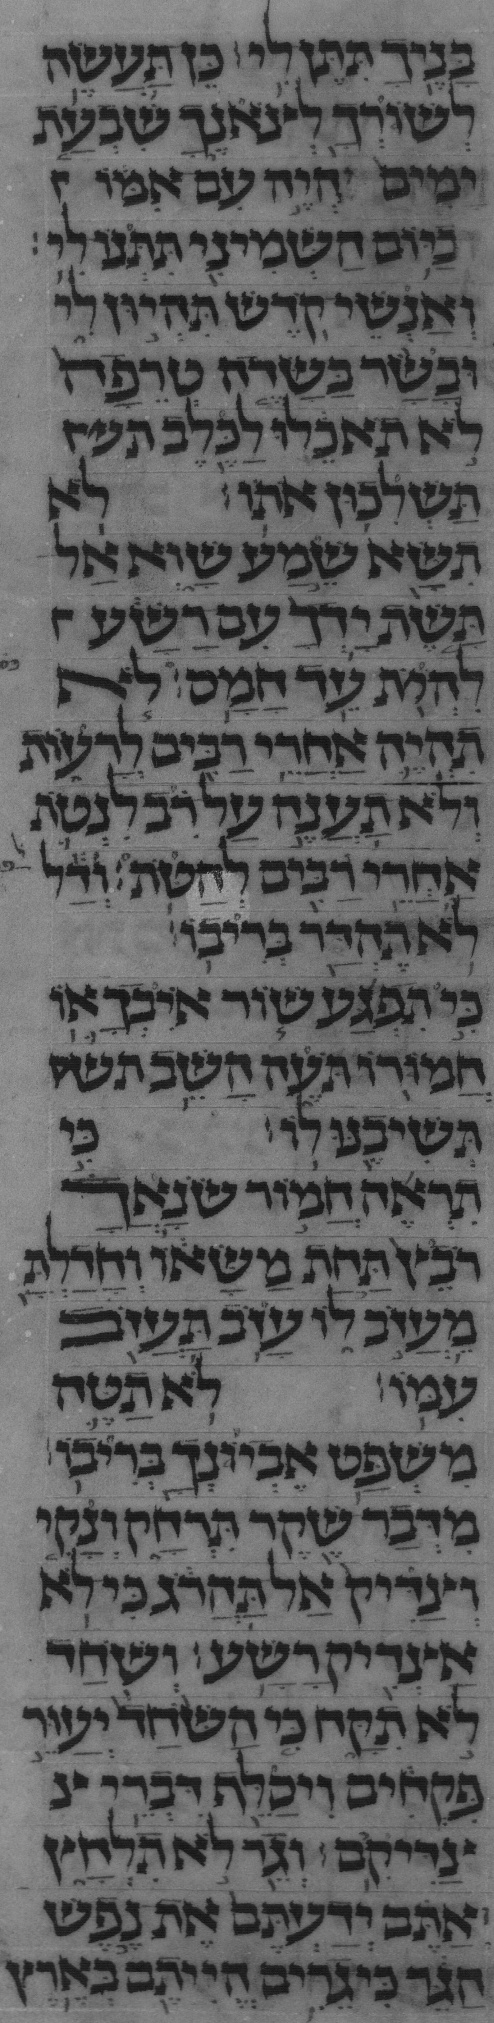 בָּנֶיךָ תִּתֶּן לִי׃ כֵּן תַּעֲשֶׂה
לְשׁוֹרְךָ לְצֹאנֶךָ שִׁבְעַת
יָמִים יִהְיֶה עִם אִמּוֹ
בַּיּוֹם הַשְּׁמִינִי תִּתְּנוֹ לִי׃
וְאַנְשֵׁי קֹדֶשׁ תִּהְיוּן לִי
וּבָשָׂר בַּשָּׂדֶה טְרֵפָה
לֹא תֹאכֵלוּ לַכֶּלֶב תש
תַּשְׁלִכוּן אֹתוֹ׃ לֹא
תִשָּׂא שֵׁמַע שָׁוְא אַל
תָּשֶׁת יָדְךָ עִם רָשָׁע
לִהְיֹת עֵד חָמָס׃ לֹא
תִהְיֶה אַחֲרֵי רַבִּים לְרָעוֹת
וְלֹא תַעֲנֶה עַל רִב לִנְטֹת
אַחֲרֵי רַבִּים לְהַטֹּת׃ וְדָל
לֹא תֶהְדַּר בְּרִיבוֹ׃
כִּי תִפְגַּע שׁוֹר אֹיִבְךָ אוֹ
חֲמוֹרוֹ תֹּעֶה הָשֵׁב תשׁ
תְּשִׁיבֶנּוּ לוֹ׃ כִּי
תִרְאֶה חֲמוֹר שֹׂנַאֲךָ
רֹבֵץ תַּחַת מַשָּׂאוֹ וְחָדַלְתָּ
מֵעֲזֹב לוֹ עָזֹב תַּעֲזֹב
עִמּוֹ׃ לֹא תַטֶּה
מִשְׁפַּט אֶבְיֹנְךָ בְּרִיבוֹ׃
מִדְּבַר שֶׁקֶר תִּרְחָק וְנָקִי
וְצַדִּיק אַל תַּהֲרֹג כִּי לֹא
אַצְדִּיק רָשָׁע׃ וְשֹׁחַד
לֹא תִקָּח כִּי הַשֹּׁחַד יְעַוֵּר
פִּקְחִים וִיסַלֵּף דִּבְרֵי צ
צַדִּיקִם׃ וְגֵר לֹא תִלְחָץ
אַתֶּם יְדַעְתֶּם אֶת נֶפֶשׁ
הַגֵּר כִּי גֵרִים הֱיִיתֶם בְּאֶרֶץ